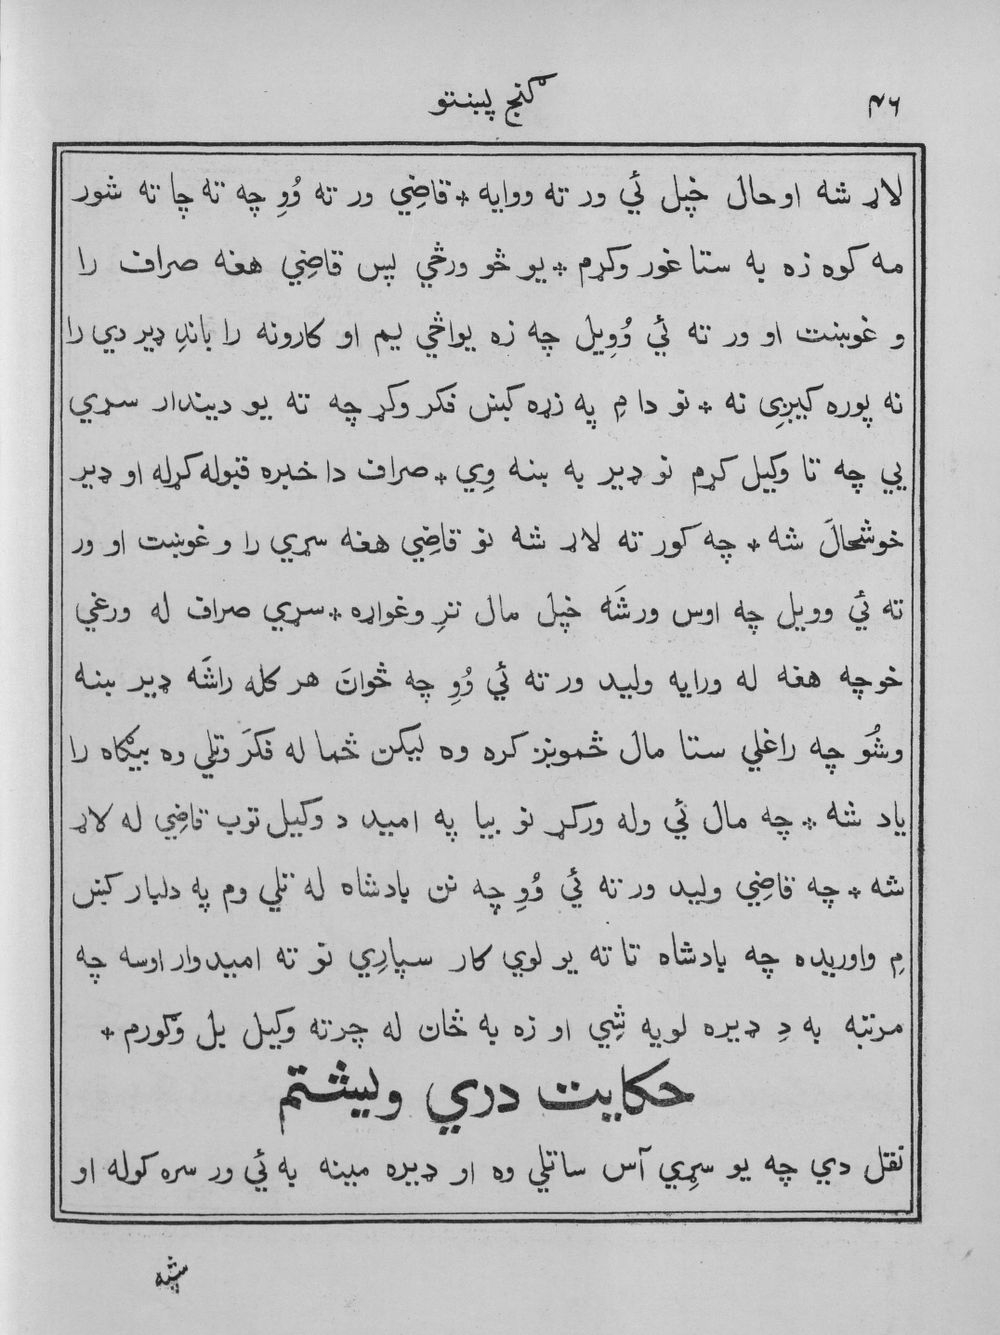 ۴۶
ګنج پښتو
لاړ شه او حال خپل ئي ور ته ووايه * قاضِي ور ته وُوِ چه ته چا ته شور
مه کوه زه به ستا غور وکړم * يو څو ورځي پس قاضِي هغه صراف را
و غوښت او ور ته ئي وُوِيل چه زه يواځي يم او کارونه را باندِ ډير دي را
نه پوره کيږِي نه * نو دا مِ په زړه کښ فکر وکړ چه ته يو ديندار سړي
يي چه تا وکيل کړم نو ډير به ښه وِي * صراف دا خبره قبوله کړله او ډير
خوشحالَ شه * چه کور ته لاړ شه نو قاضِي هغه سړي را و غوښت او ور
ته ئي وويل چه اوس ورشَه خپل مال ترِ وغواړه * سړي صراف له ورغي
خوچه هغه له ورايه وليد ور ته ئي وُوِ چه څوانَ هر کله راشَه ډير ښه
وشُو چه راغلي ستا مال څموښز کره وه ليکن څما له فکرَ وتلي وه بيګاه را
ياد شه * چه مال ئي وله ورکړ نو بيا په اميد د وکيل توب قاضِي له لاړ
شه * چه قاضِي وليد ور ته ئي وُوِ چه نن بادشاه له تلي وم په دلبار کښ
مِ واوريده چه بادشاه تا ته يو لوي کار سپارِي نو ته اميدوار اوسه چه
مرتبه به دِ ډيره لويه شِي او زه به ځان له چرته وکيل بل وګورم *
حکايت دري وليشتم
نقل دي چه يو سړِي آس ساتلي وه او ډيره مينه به ئي ور سره کوله او
شپه